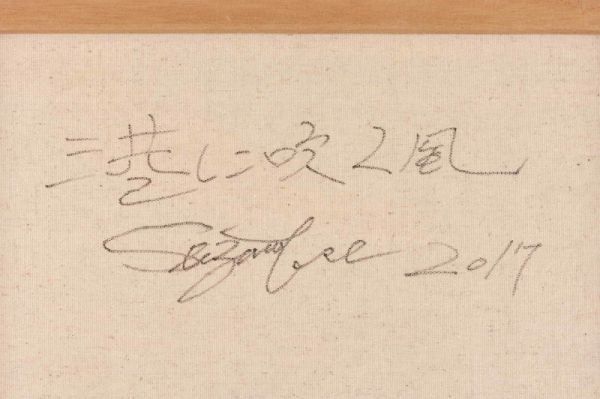 港に吹く風
2017